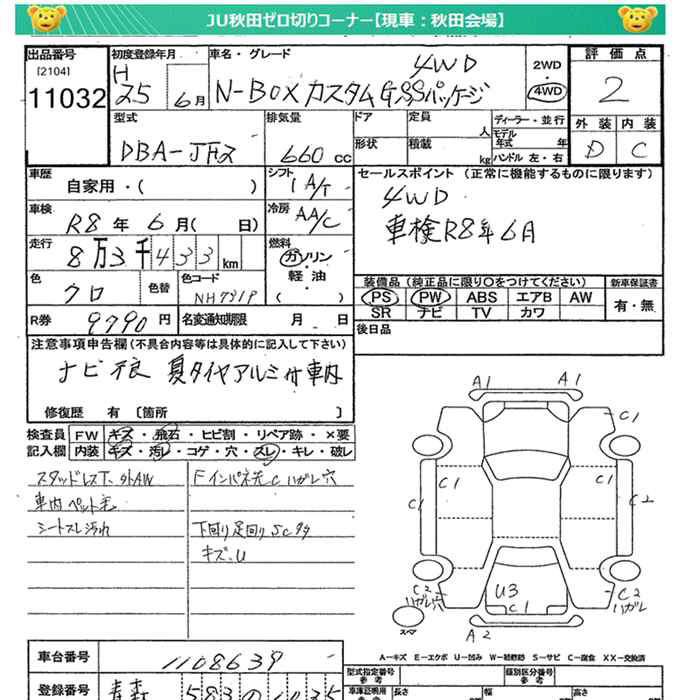 JU秋田ゼロ切りコーナー【現車：秋田会場】
出品番号
[2104]
11032
初度登録年月
H
25 6月
車名・グレード
4WD
N-BOXカスタムGSSパッケージ
2WD
・
4WD
評価点
2
型式
DBA-JF2
排気量
660 cc
ドア
形状
定員
人
積載
kg
ディーラー・並行
モデル
年式 年
ハンドル 左・右
外装 内装
D C
車歴
自家用・( )
シフト
IA/T
セールスポイント (正常に機能するものに限ります)
4WD
車検R8年6月
車検
R8年 6月( 日)
冷房
AA/C
走行
8万3千433km
燃料
ガソリン
・
軽油
( )
色
クロ
色替
色コード
NH731P
装備品 (純正品に限り○をつけてください)
PS PW ABS エアB AW
SR ナビ TV カワ
新車保証書
有・無
R券
9790円
名変通知期限 月 日
後日品
注意事項申告欄(不具合内容等は具体的に記入して下さい)
ナビ不良 夏タイヤアルミ付車内
修復歴 有 〔箇所 〕
検査員
記入欄
FW キズ・飛石・ヒビ割・リペア跡・×要
内装 キズ・汚レ・コゲ・穴・スレ・キレ・破レ
スタッドレスT、外AW
車内ペット毛
シートスレ汚れ
FインパネキズCハガレ穴
下回り足回りSCサタ
キズ、U
A1 A1
C1
C1 C1
C1 C2
C2
ハガレ穴
U3
C1
C2
ハガレ
スペア
A2
A-キズ E-エクボ U-凹み W-補修跡 S-サビ C-腐食 XX-交換済
車台番号
1108639
登録番号
青森 583 0 1035
型式指定番号
参考
類別区分番号
参考
車庫証明用
参考
長さ
幅
高さ